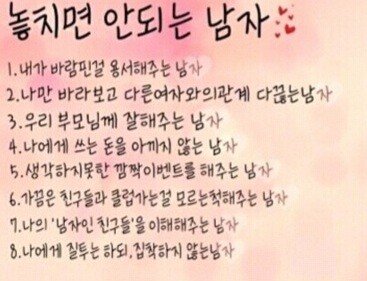 놓치면 안되는 남자
1.내가 바람핀걸 용서해주는 남자
2.나만 바라보고 다른여자와의관계 다끊는남자
3.우리 부모님께 잘해주는 남자
4.나에게 쓰는 돈을 아끼지 않는 남자
5.생각하지못한 깜짝이벤트를 해주는 남자
6.가끔은 친구들과 클럽가는걸 모르는척해주는 남자
7.나의 '남자인 친구들'을 이해해주는 남자
8.나에게 질투는 하되, 집착하지 않는남자